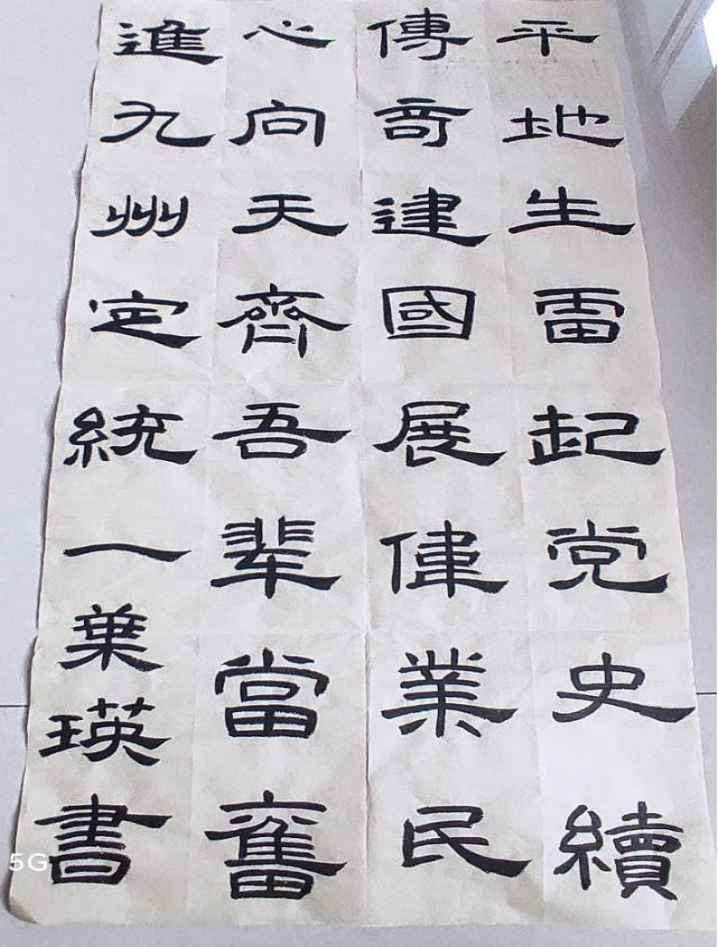 平地生雷起党史續
傳奇建國展偉業民
心向天齊吾輩當奮
進九州定統一葉瑛書
5G